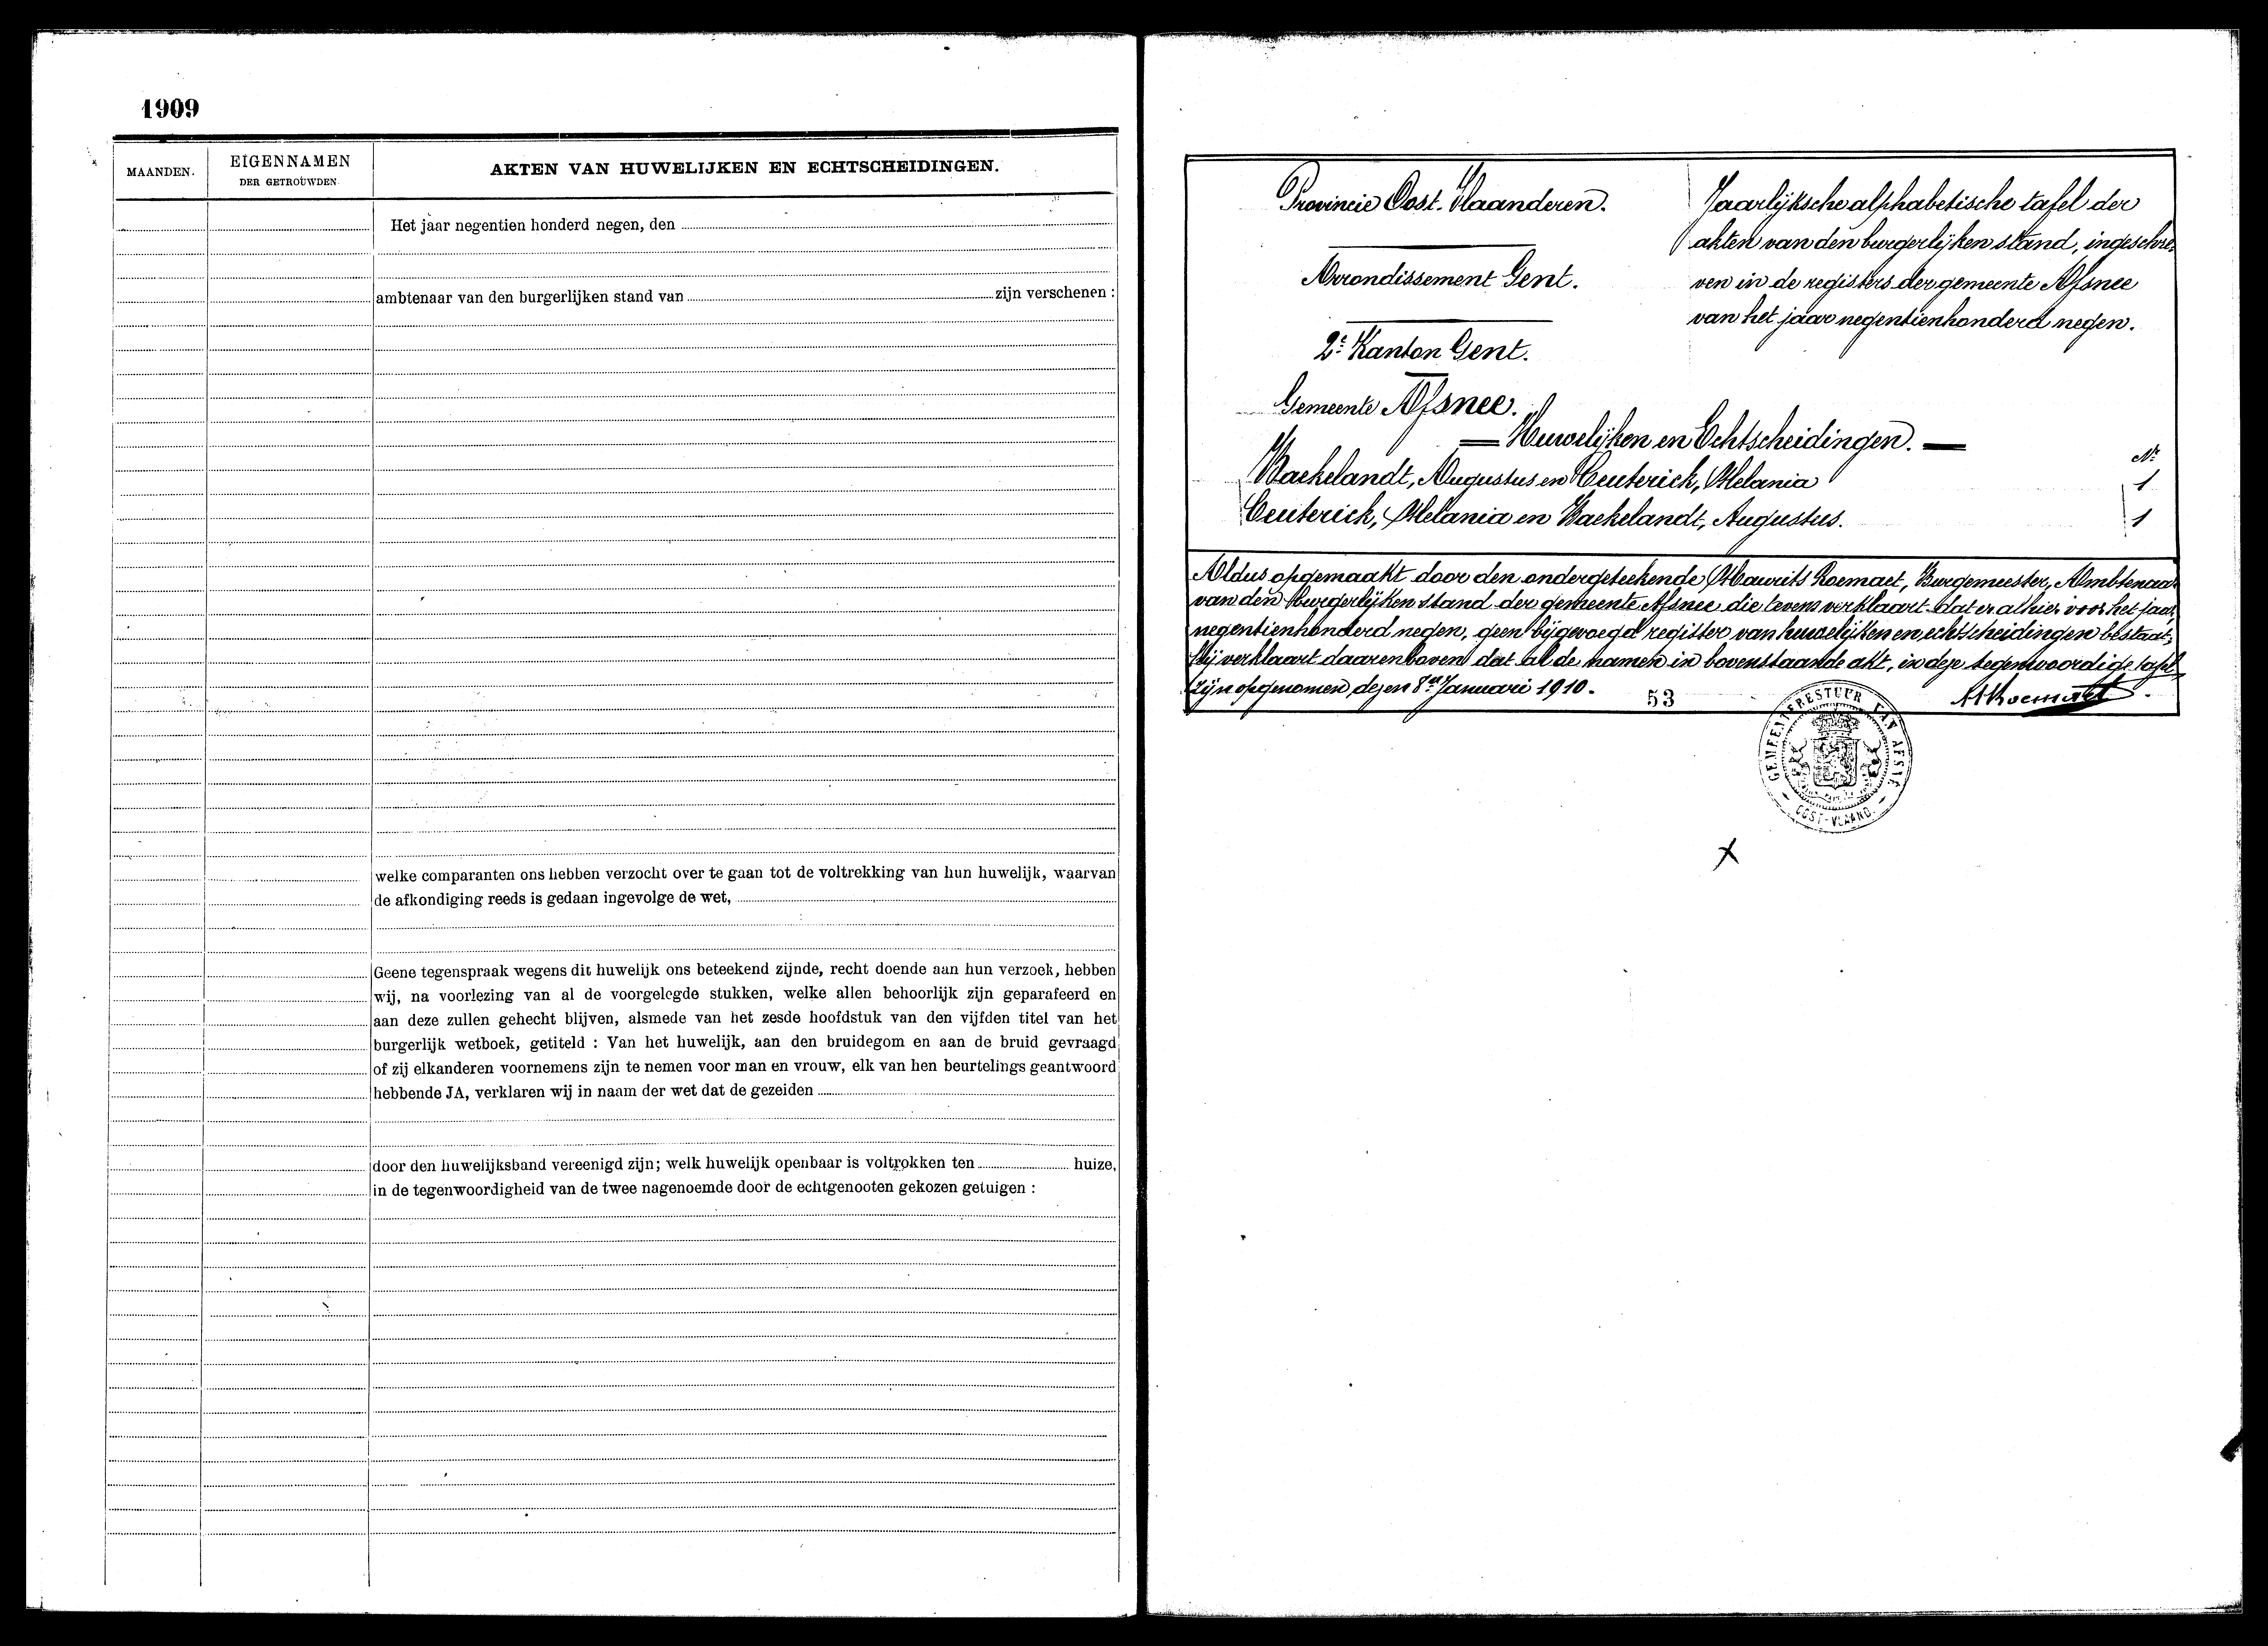 1909
MAANDEN.
EIGENNAMEN
DER GETROUWDEN
AKTEN VAN HUWELIJKEN EN ECHTSCHEIDINGEN.
Het jaar negentien honderd negen, den
ambtenaar van den burgerlijken stand van zijn verschenen :
welke comparanten ons hebben verzocht over te gaan tot de voltrekking van hun huwelijk, waarvan
de afkondiging reeds is gedaan ingevolge de wet,
Geene tegenspraak wegens dit huwelijk ons beteekend zijnde, recht doende aan hun verzoek, hebben
wij, na voorlezing van al de voorgelegde stukken, welke allen behoorlijk zijn geparafeerd en
aan deze zullen gehecht blijven, alsmede van het zesde hoofdstuk van den vijfden titel van het
burgerlijk wetboek, getiteld : Van het huwelijk, aan den bruidegom en aan de bruid gevraagd
of zij elkanderen voornemens zijn te nemen voor man en vrouw, elk van hen beurtelings geantwoord
hebbende JA, verklaren wij in naam der wet dat de gezeiden
door den huwelijksband vereenigd zijn; welk huwelijk openbaar is voltrokken ten huize,
in de tegenwoordigheid van de twee nagenoemde door de echtgenooten gekozen getuigen :
Provincie Oost-Vlaanderen.
Arrondissement Gent.
2e Kanton Gent.
Gemeente Afsnee.
Jaarlijksche alphabetische tafel der
akten van den burgerlijken stand, ingeschre-
ven in de registers der gemeente Afsnee
van het jaar negentienhonderd negen.
Huwelijken en Echtscheidingen.
Nr
Baekelandt, Augustus en Ceuterick, Melania 1
Ceuterick, Melania en Baekelandt, Augustus. 1
Aldus opgemaakt door den ondergeteekende, Maurits Roemaet, Burgemeester, Ambtenaar
van den Burgerlijken stand der gemeente Afsnee die tevens verklaart dat er alhier voor het jaar
negentienhonderd negen, geen bijgevoegd register van huwelijken en echtscheidingen bestaat;
Hij verklaart daarenboven dat al de namen in bovenstaande akt, in deze tegenwoordige tafel
zijn opgenomen, dezen 8en Januari 1910.
53
GEMEENTEBESTUUR VAN AFSNÉ
OOST-VLAAND.